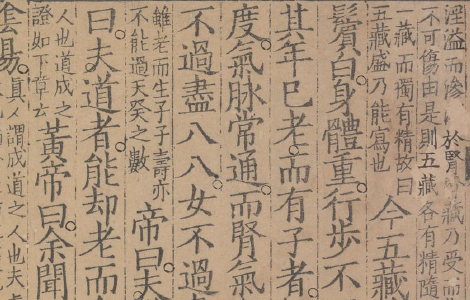 淫溢而滲於腎腎藏乃受而
不可傷由是則五藏各有精隨
一藏而獨有精故曰
五藏盛乃能寫也
今五藏
鬢白。身體重。行步不
其年已老。而有子者。
度。氣脉常通。而腎氣
不過盡八八。女不過
雖老而生子子壽亦
不能過天癸之數
帝曰。夫
曰。夫道者。能却老而
人也道成之
證如下章云
黃帝曰。余聞
陰陽。
真人謂成道之人也夫